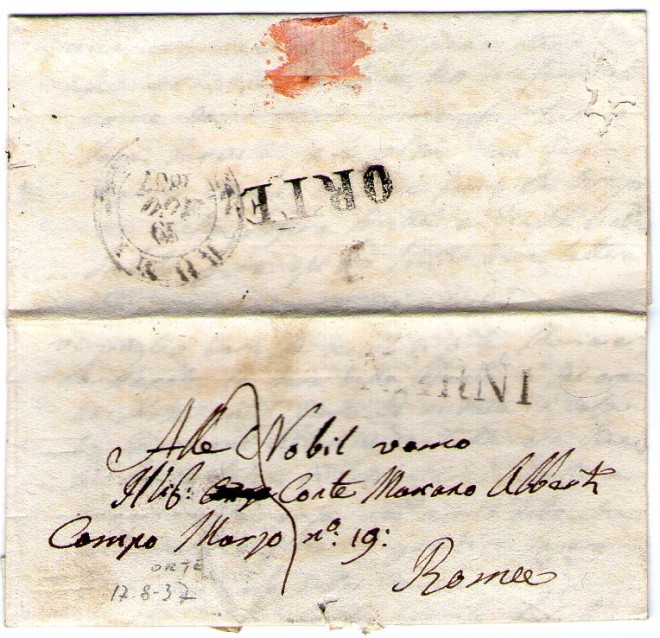 ORTE
ROMA
19
1837
NARNI
Alle Nobil vomo
Conte Mariano Alberti
Campo Marzo n.o 19:
Roma
ORTE
17-8-37